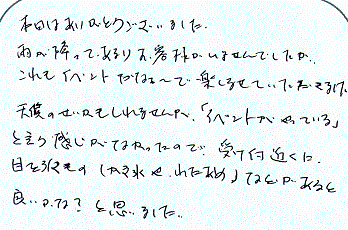 本日はありがとうございました。
雨が降ってあまりお客様がいませんでしたが、
これもイベントかな〜で楽しませていただきました
天候のせいかもしれませんが、「イベントがやっている」
と言う感じがなかったので、受付近くに
目を引くもの(かき氷やふわあめ)などがあると
良いかな?と思いました。